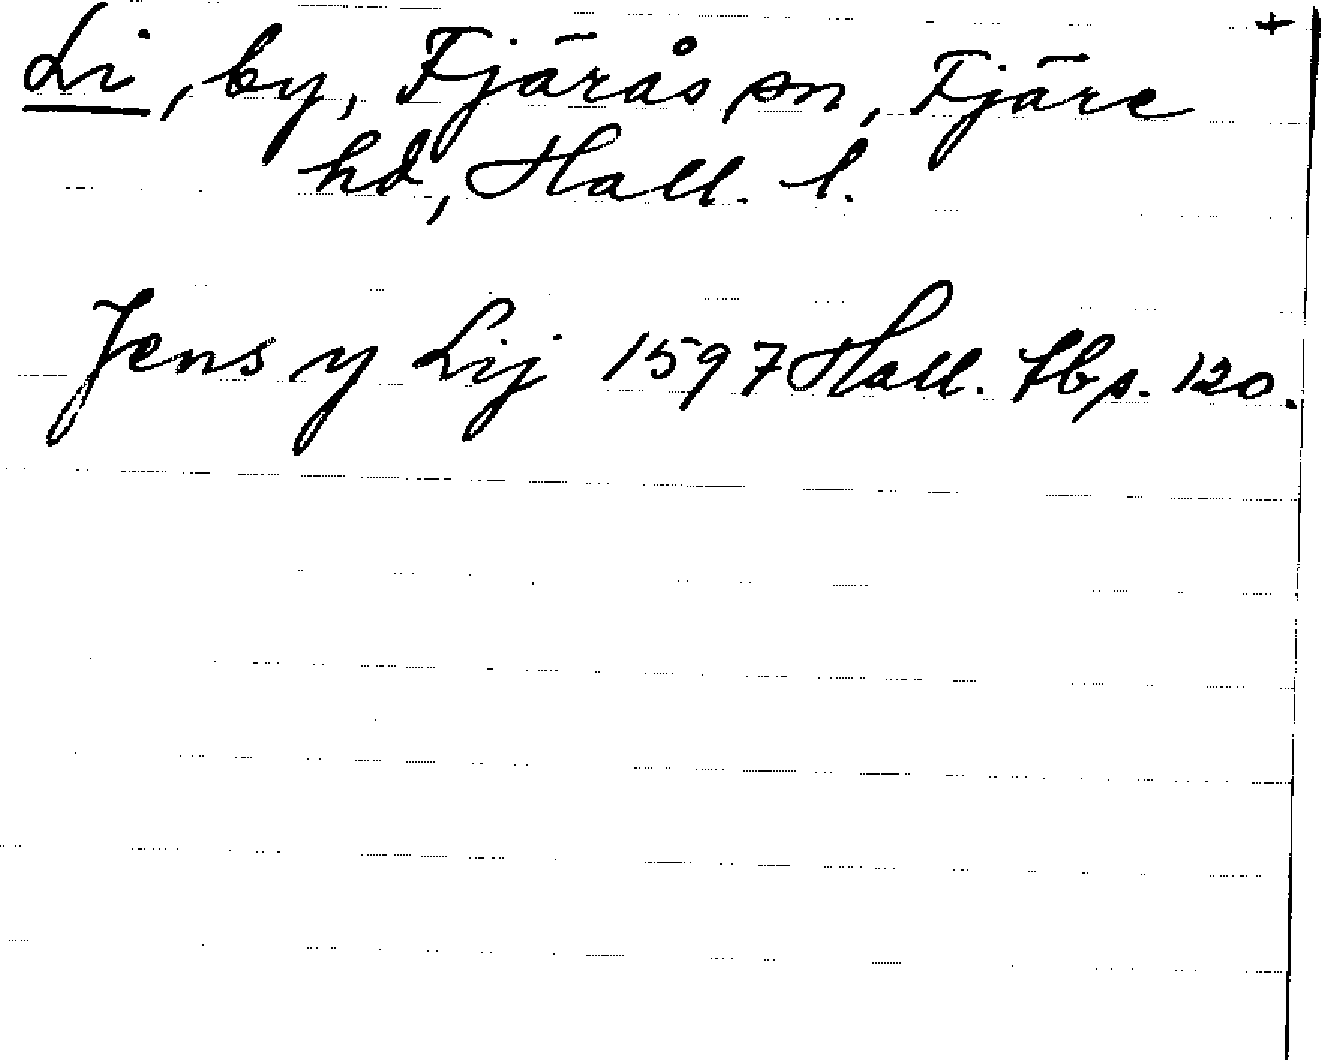 +
Li, by, Fjärås sn, Fjäre
hd, Hall. l.
Jens y Lij 1597 Hall. tbs. 120.